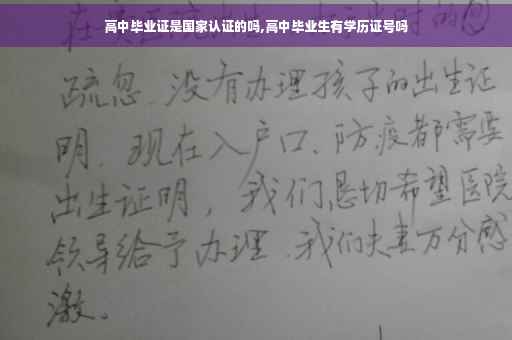 高中毕业证是国家认证的吗,高中毕业生有学历证号吗
疏忽.没有办理孩子的出生证
明.现在入户口、防疫都需要
出生证明,我们恳切希望医院
领导给予办理.我们夫妻万分感
激。